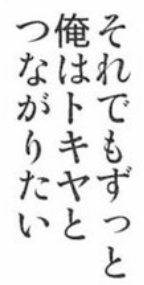 それでもずっと
俺はトキヤと
つながりたい